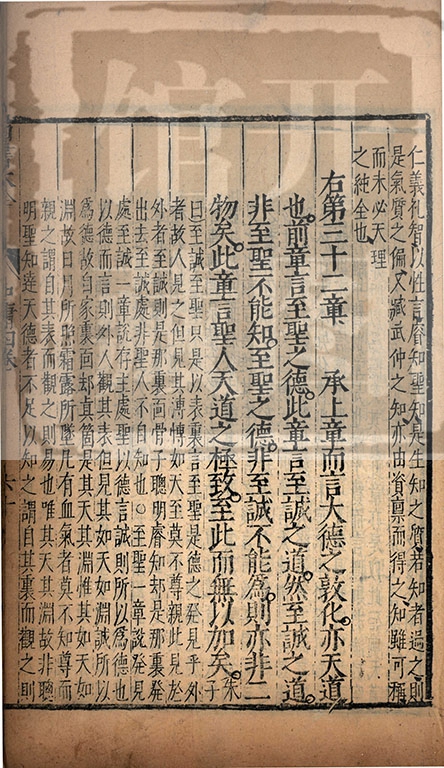 仁義礼智以性言睿知聖知是生知之質若知者過之則
是氣質之偏又臧武仲之知亦由資禀而得之知雖可稱
而未必天理
之純全也
右第三十二章 承上章而言大德之敦化亦天道
也前章言至聖之德此章言至誠之道然至誠之道
非至聖不能知至聖之德非至誠不能為則亦非二
物矣此章言聖人天道之極致至此而無以加矣朱子
曰至誠至聖只是以表裏言至聖是德之發見乎外
者故人見之但見其溥博如天至莫不尊親此見於
外者至誠則是那裏面骨子聰明睿知却是那裏發
出去至誠處非聖人不自知也○至聖一章說發見
處至誠一章說存主處聖以德言誠則所以為德也
以德而言則外人觀其表但見其如天如淵誠所以
為德故自家裏面却真箇是其天其淵惟其如天如
淵故日月所照霜露所墜凡有血氣者莫不知尊而
親之謂自其表而觀之則易也唯其天其淵故非聰
明聖知達天德者不足以知之謂自其裏而觀之則